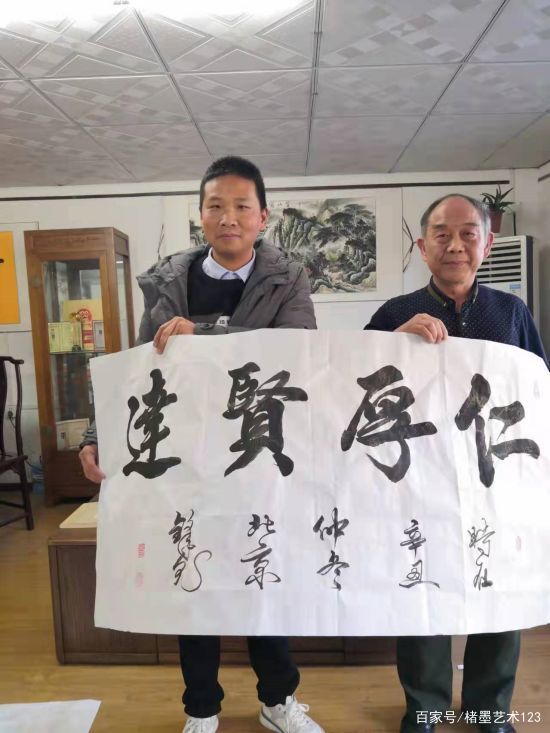 仁厚賢達
時在
辛丑
仲冬
北京
百家号/楮墨艺术123